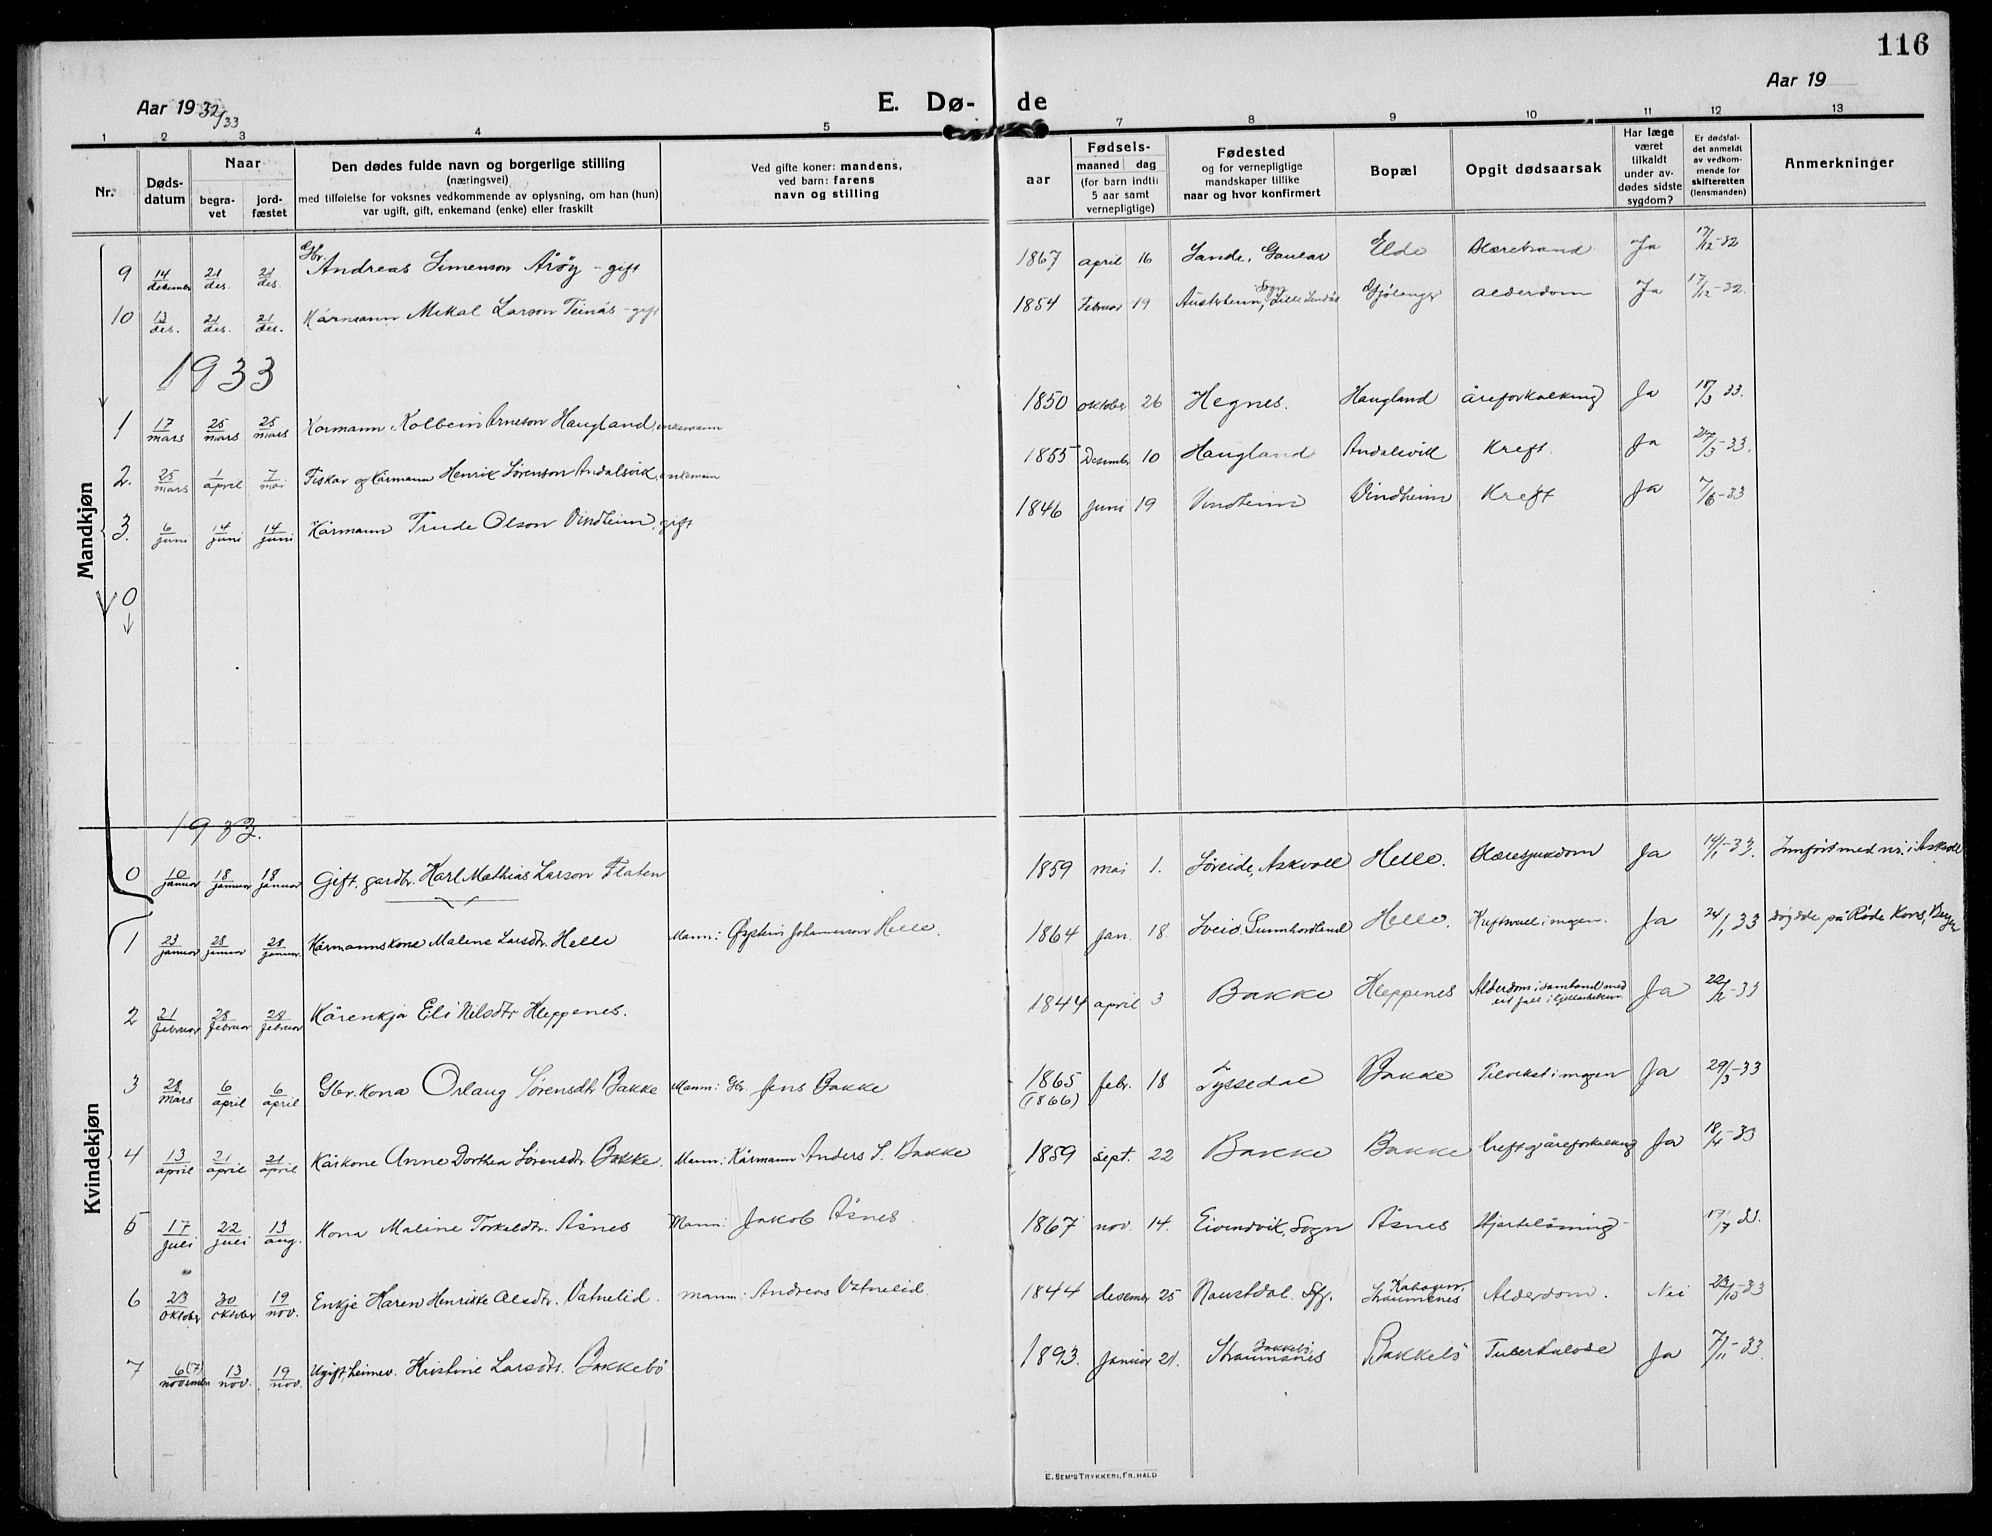 116
Aar 1932/33
E. Dø- de
Aar 19
1 2 3 4 5 7 8 9 10 11 12 13
Nr.
Døds-datum
Naar
begra-vet
jord-fæstet
Den dødes fulde navn og borgerlige stilling
(næringsvei)
med tilføielse for voksnes vedkommende av oplysning, om han (hun)
var ugift, gift, enkemand (enke) eller fraskilt
Ved gifte koner: mandens,
ved barn: farens
navn og stilling
aar
Fødsels-
maaned dag
(for barn indtil
5 aar samt
vernepligtige)
Fødested
og for vernepligtige
mandskaper tillike
naar og hvor konfirmert
Bopæl
Opgit dødsaarsak
Har læge
været
tilkaldt
under av-
dødes sidste
sygdom?
Er dødsfal-
det anmeldt
av vedkom-
mende for
skifteretten
(lensmanden)
Anmerkninger
Mandkjøn
9 14/desember 21/des. 21/des. Gbr. Andreas Simenson Årøy - gift 1867 april 16 Sande, Gaular Elde Ja 17/12-32
10 13/des. 21/des. 21/des. Kårmann Mikal Larson Teinås - gift 1854 Februar 19 Austrheim, Lille Lindås Sogn alderdom Ja 17/12-32.
1933
1 17/mars 25/mars 25/mars Kårmann Kolbein Arneson Haugland, enkemann 1850 oktober 26 Hegnes. Haugland åreforkalking Ja 18/3 33.
2. 25/mars 1/april 7/mai Fiskar og Kårmann Henrik Sørenson Andalsvik, enkemann 1855 Desember 10 Haugland Andalsvik Kreft. Ja 3-33.
3. 6/juni 14/juni 14/juni Kårmann Trude Olson Vindheim, gift 1846 juni 19 Vindheim Vindheim Kreft Ja 7/6-33
0
1933.
0 10/januar 18/januar 18/januar Gift, gardbr. Karl Mathias Larson Flaten 1859 mai 1. Søreide, Askvoll Helle. Ja 14/1-33. Innført med nr. i Askvoll
Kvindekjøn
1 23/januar 28/januar 28/januar. Kårmannskone Malene Larsdtr. Helle Mann: Øystein Johannesson Helle. 1864 jan. 18. Sveio, Sunnhordland Helle. i magen. Ja 24/1 33 døydde på Røde Kors, Bergen
2 21/februar 28/februar 28/februar Kårenkja Eli Nilsdtr Kleppenes. 1844 april 3 Bakke Kleppenes Alderdom i samband med eit fall Ja 22/2-33
3 28/mars 6/april 6/april Gbr. kona Orlaug Sørensdtr Bakke Mann: Gbr. Jens Bakke 1865 (1866) febr. 18 Tyssedal Bakke Tilvekst i magen Ja 29/3-33
4 13/april 21/april 21/april Kårkone Anne Dorthea Sørensdtr. Bakke. Mann: Kårmann Anders S. Bakke 1859 sept. 22 Bakke Bakke Kreft og åreforkalking Ja 18/4-33
5 17/juli 22/juli 13/aug. Kona Maline Torkeldtr. Åsnes Mann: Jakob Åsnes 1867 nov. 14. Eivindvik, Sogn Åsnes Hjartelåming 17/7 33.
6 23/oktober 30/oktober 19/nov. Enkje Karen Henrikke Olsdtr. Vatnelid. mann: Andreas Vatnelid. 1844 desember 25 Naustdal. Sfj. Straumsnes Alderdom. Nei 23/10-33
7 6(7)/november 13/nov. 19/nov. Ugift, heimev. Kristine Larsdtr. Bakkebø 1893. januar 21. Bakkebø, Straumsnes Bakkebø Tuberkulose Ja 7/11-33.
E. SEM'S TRYKKERI, FR.HALD